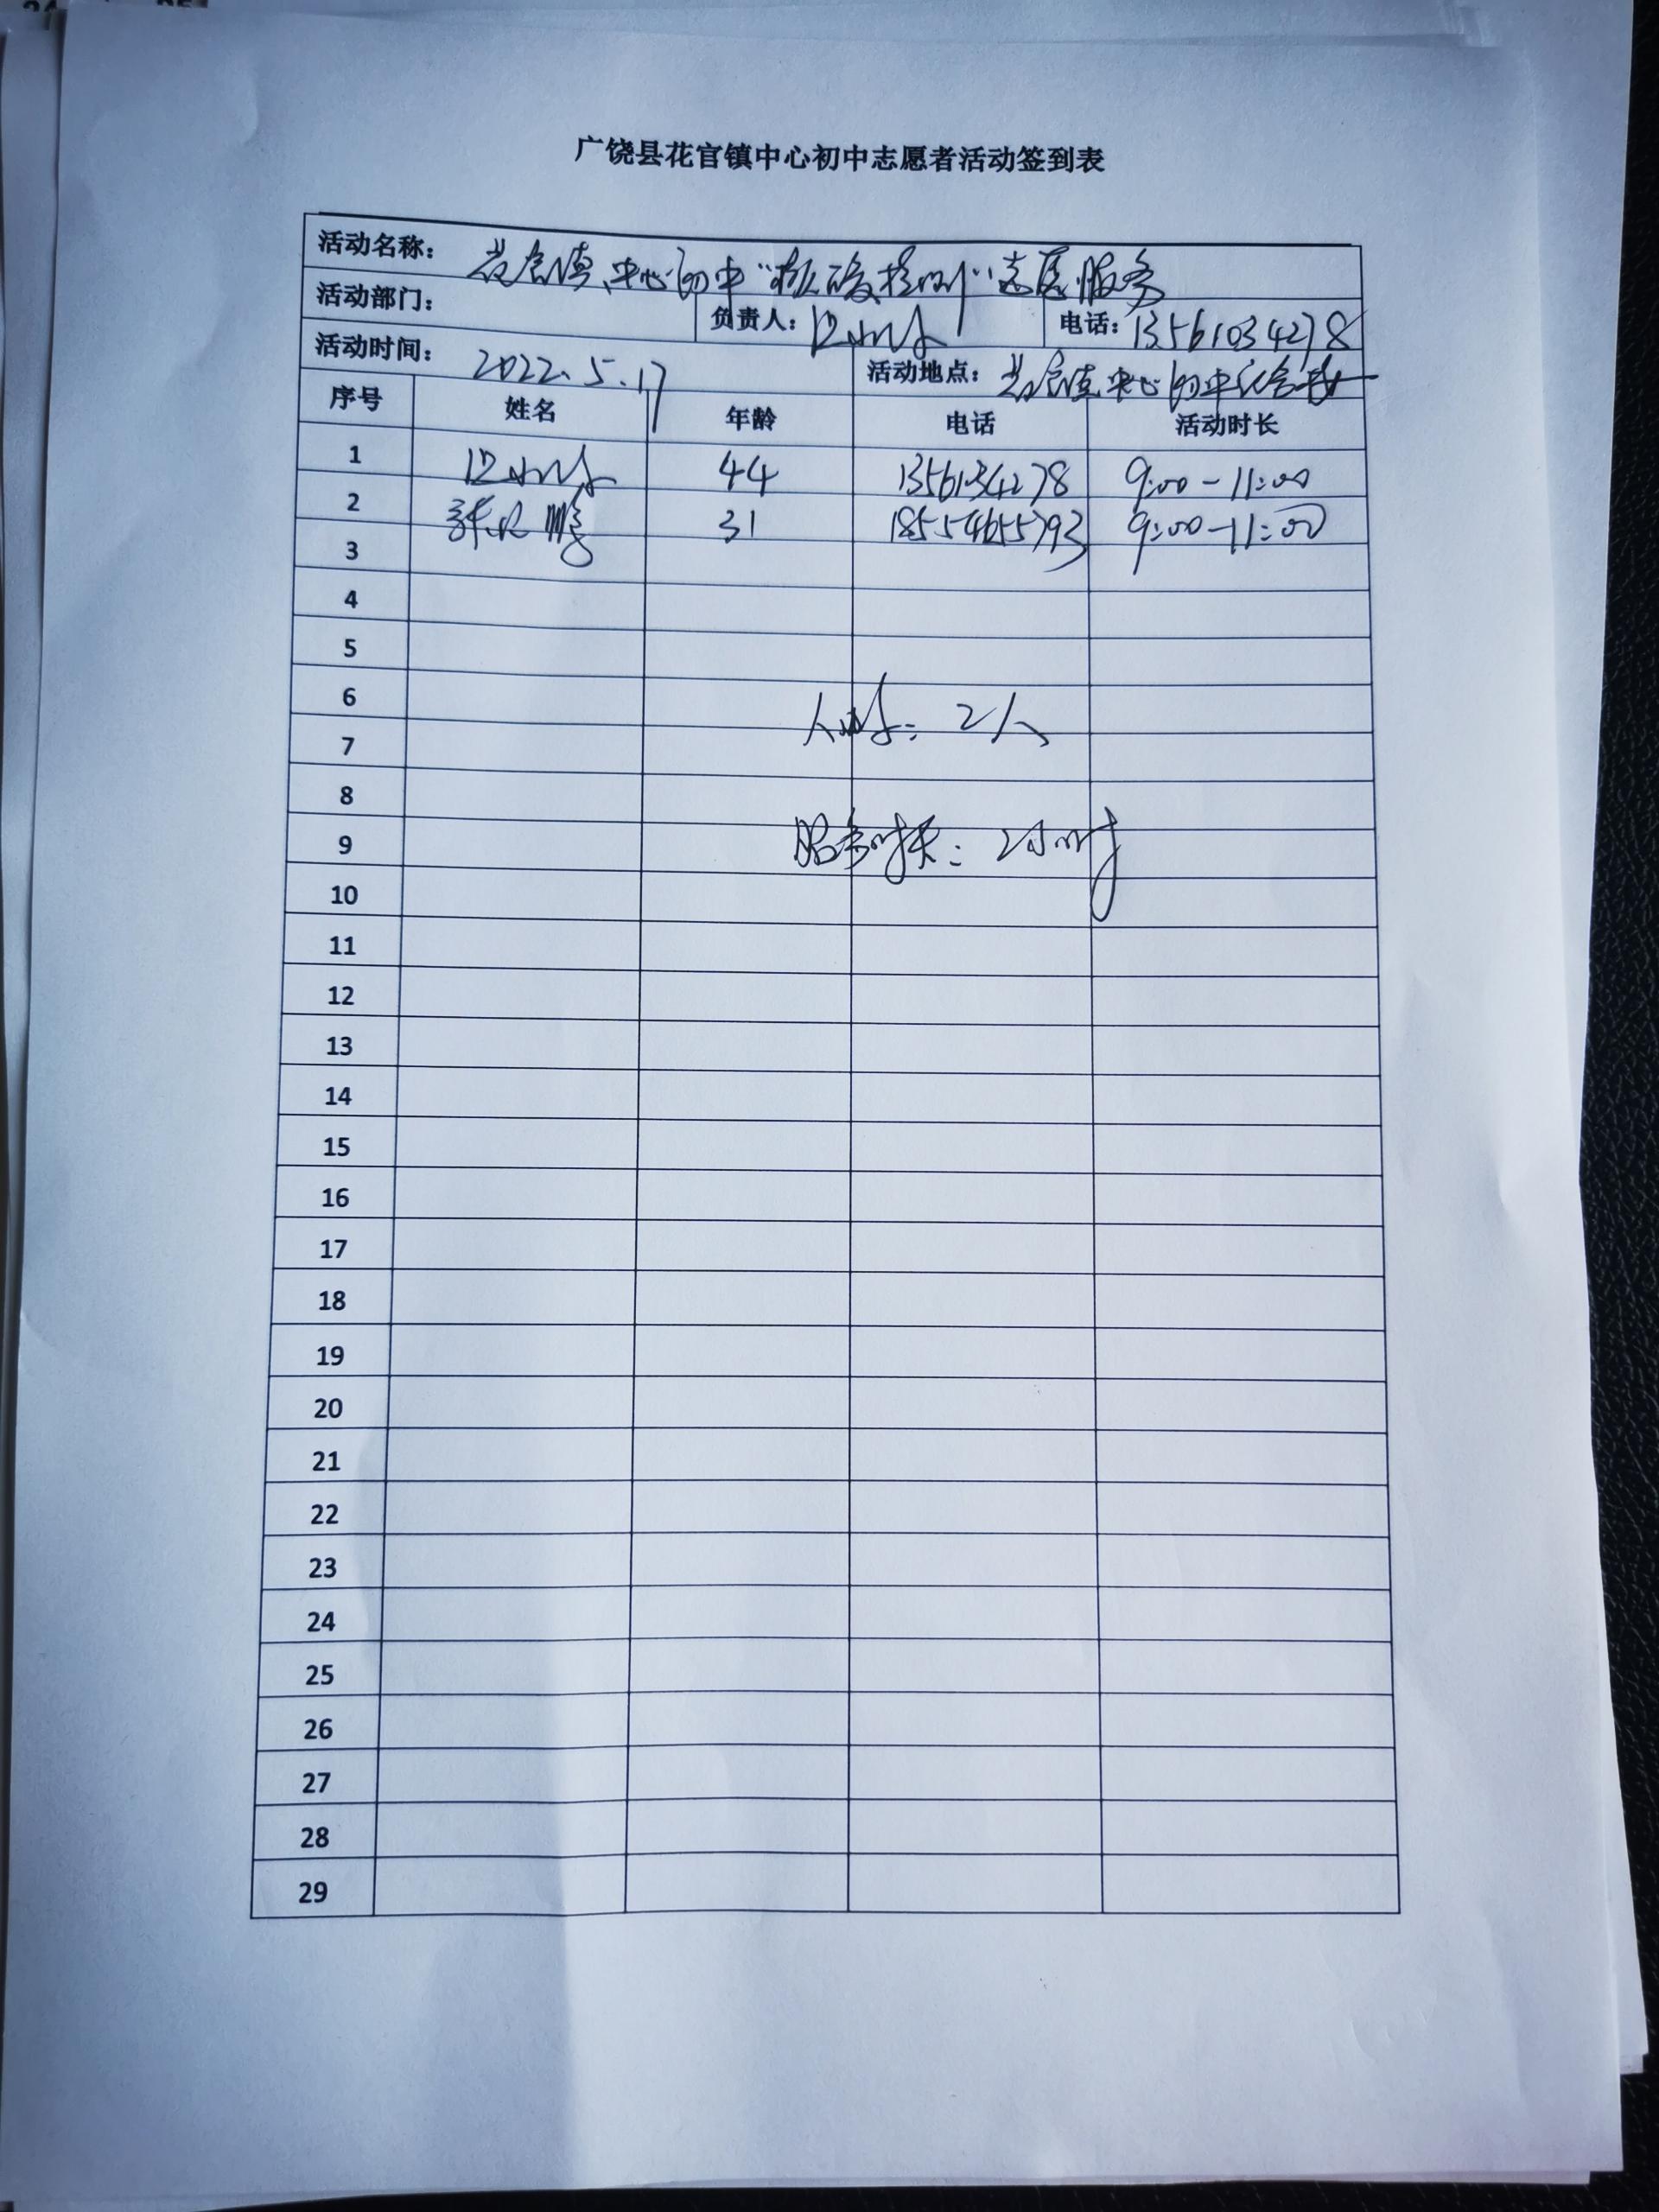 广饶县花官镇中心初中志愿者活动签到表
活动名称： 花官镇中心初中“核酸检测”志愿服务
活动部门： 负责人： 电话：13561034278
活动时间： 2022.5.17 活动地点： 花官镇中心初中
序号 姓名 年龄 电话 活动时长
1 44 13561034278 9:00-11:00
2 31 18554655793 9:00-11:00
3
4
5
6
人数：2人
7
8
9 服务时长：2小时
10
11
12
13
14
15
16
17
18
19
20
21
22
23
24
25
26
27
28
29